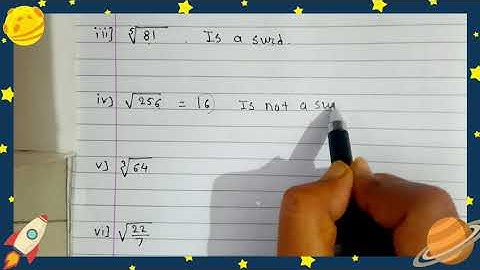 iii] ⁵√81 . Is a surd.
iv] √256 = 16 Is not a sur
v] ³√64
vi] √22/7